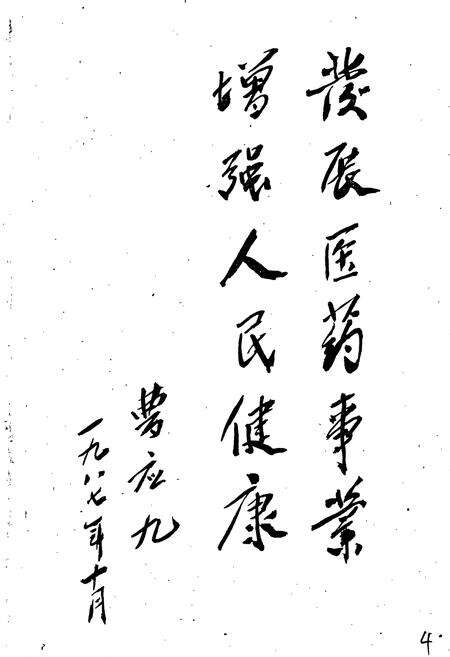 發展医药事業
增强人民健康
曹应九
一九八七年十月
4